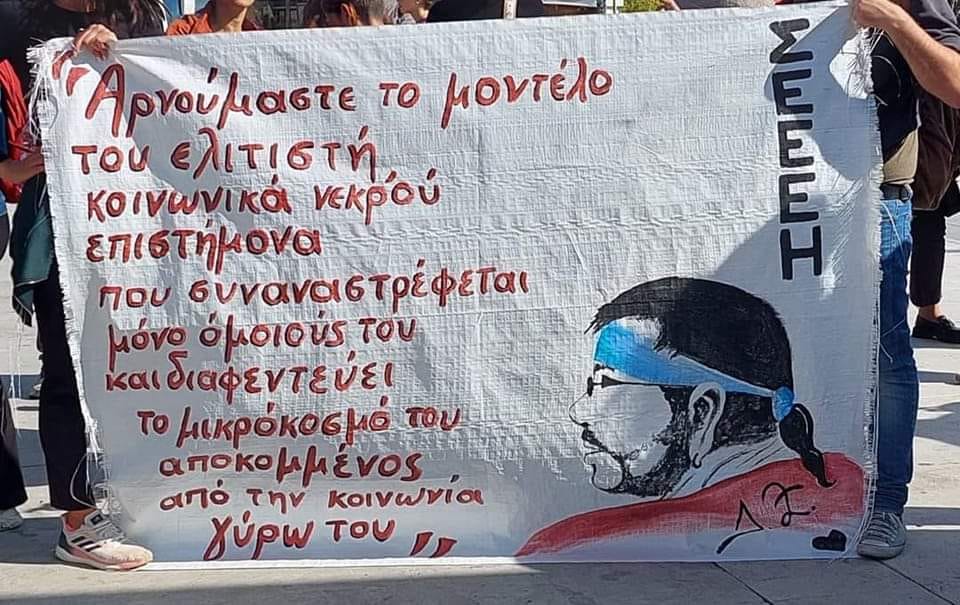 "Αρνούμαστε το μοντέλο
του ελιτιστή
κοινωνικά νεκρού
επιστήμονα
που συναναστρέφεται
μόνο όμοιούς του
και διαφεντεύει
το μικρόκοσμό του
αποκομμένος
από την κοινωνία
γύρω του"
ΣΕΕΕΗ
Δ.Σ.